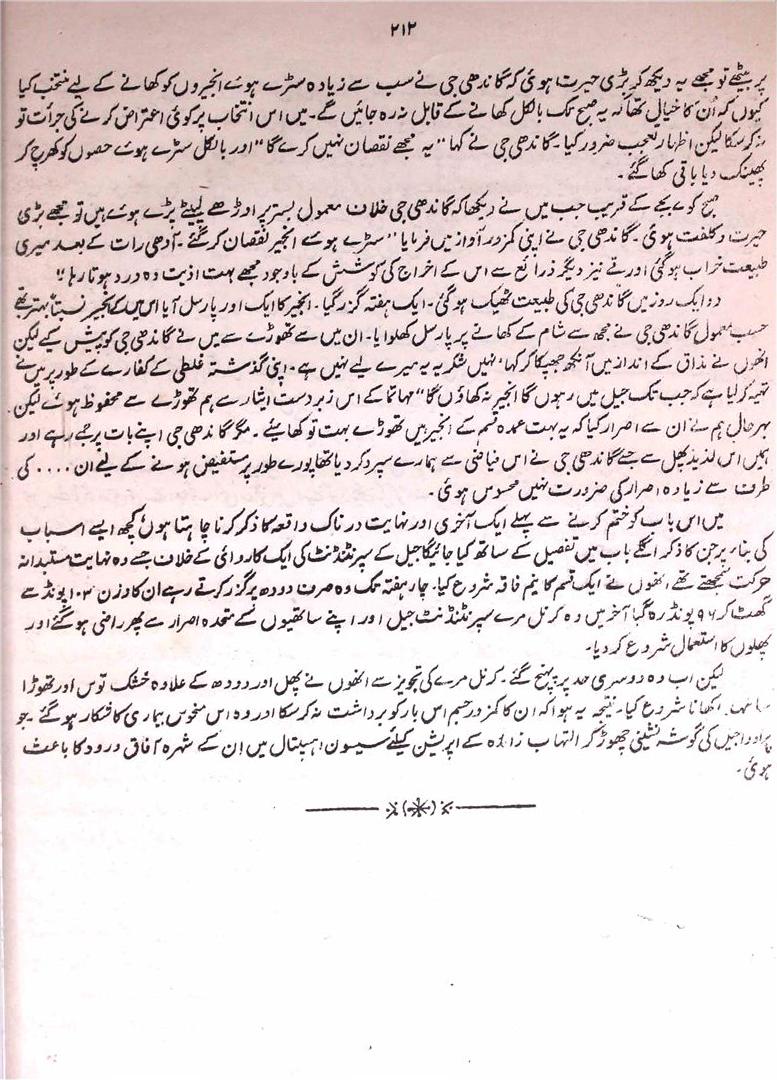 ۲۱۲
پر بیٹھے تو مجھے یہ دیکھ کر بڑی حیرت ہوئی کہ گاندھی جی نے سب سے زیادہ سڑے ہوئے انجیروں کو کھانے کے لیے منتخب کیا
کیوں کہ اُن کا خیال تھا کہ یہ صبح تک بالکل کھانے کے قابل نہ رہ جائیں گے۔ میں اس انتخاب پر کوئی اعتراض کرنے کی جرأت تو
نہ کر سکا لیکن اظہار تعجب ضرور کیا۔ گاندھی جی نے کہا "یہ مجھے نقصان نہیں کرے گا" اور بالکل سڑے ہوئے حصوں کو کھرچ کر
پھینک دیا باقی کھا گئے۔
صبح کو ۷ بجے کے قریب جب میں نے دیکھا کہ گاندھی جی خلاف معمول بستر پر اوڑھے لپیٹے پڑے ہوئے ہیں تو مجھے بڑی
حیرت و کلفت ہوئی۔ گاندھی جی نے اپنی کمزور آواز میں فرمایا "سڑے ہوئے انجیر نقصان کر گئے۔ آدھی رات کے بعد میری
طبیعت خراب ہو گئی اور قے نیز دیگر ذرائع سے اس کے اخراج کی کوشش کے باوجود مجھے بہت اذیت دہ درد ہوتا رہا"
دو ایک روز میں گاندھی جی کی طبیعت ٹھیک ہو گئی۔ ایک ہفتہ گزر گیا۔ انجیر کا ایک اور پارسل آیا اس میں کے انجیر نسبتاً بہتر تھے
حسب معمول گاندھی جی نے مجھ سے شام کے کھانے پر پارسل کھلوایا۔ ان میں سے تھوڑے سے میں نے گاندھی جی کو پیش کیے لیکن
انھوں نے مذاق کے انداز میں آنکھ جھپکا کر کہا "نہیں شکریہ یہ میرے لیے نہیں ہے۔ اپنی گذشتہ غلطی کے کفارے کے طور پر میں نے
تہیہ کر لیا ہے کہ جب تک جیل میں رہوں گا انجیر نہ کھاؤں گا" مہاتما کے اس زبردست ایثار سے ہم تھوڑے سے محفوظ ہوئے لیکن
بہر حال ہم نے ان سے اصرار کیا کہ یہ بہت عمدہ قسم کے انجیر ہیں تھوڑے بہت تو کھائیے۔ مگر گاندھی جی اپنے بات پر جمے رہے اور
ہمیں اس لذیذ پھل سے جسے گاندھی جی نے اس فیاضی سے ہمارے سپرد کر دیا تھا پورے طور پر مستفیض ہونے کے لیے ان .... کی
طرف سے زیادہ اصرار کی ضرورت نہیں محسوس ہوئی۔
میں اس باب کو ختم کرنے سے پہلے ایک آخری اور نہایت دردناک واقعہ کا ذکر کرنا چاہتا ہوں کچھ ایسے اسباب
کی بنا پر جن کا ذکر اگلے باب میں تفصیل کے ساتھ کیا جائیگا جیل کے سپرنٹنڈنٹ کی ایک کاروائی کے خلاف جسے وہ نہایت مستبدانہ
حرکت سمجھتے تھے انھوں نے ایک قسم کا نیم فاقہ شروع کیا۔ چار ہفتہ تک وہ صرف دودھ پر گزر کرتے رہے ان کا وزن ۱۰۳ پونڈ سے
گھٹ کر ۹۶ پونڈ رہ گیا آخر میں وہ کرنل مرے سپرنٹنڈنٹ جیل اور اپنے ساتھیوں کے متحدہ اصرار سے پھر راضی ہو گئے اور
پھلوں کا استعمال شروع کر دیا۔
لیکن اب وہ دوسری حد پر پہنچ گئے۔ کرنل مرے کی تجویز سے انھوں نے پھل اور دودھ کے علاوہ خشک توس اور تھوڑا
سا کھانا شروع کیا۔ نتیجہ یہ ہوا کہ ان کا کمزور جسم اس بار کو برداشت نہ کر سکا اور وہ اس منحوس بیماری کا شکار ہو گئے۔ جو
یراودا جیل کی گوشہ نشینی چھوڑ کر التہاب زائدہ کے اپریشن کیلئے سیسون ہسپتال میں اِن کے شہرہ آفاق ورود کا باعث
ہوئی۔